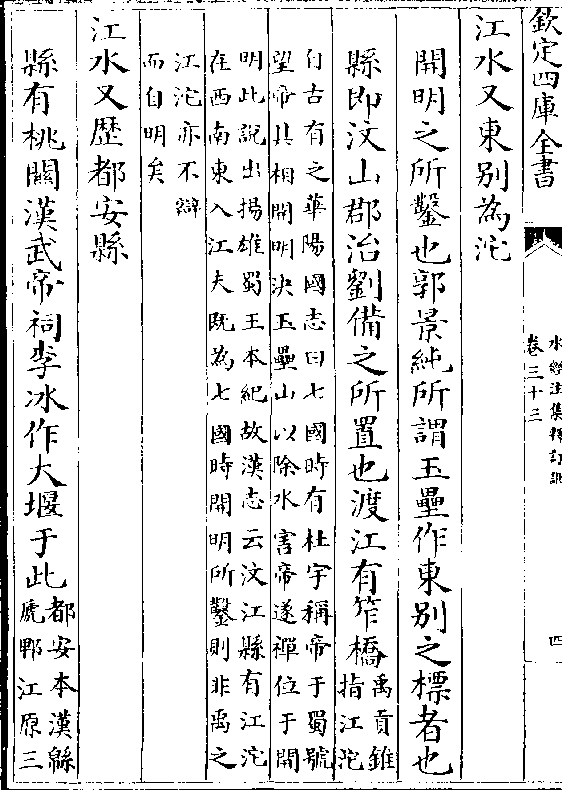 欽定四庫全書
水經注集釋訂訛
卷三十三
四
江水又東別為沱
開明之所鑿也郭景純所謂玉壘作東別之標者也
縣即汶山郡治劉備之所置也渡江有笮橋
禹貢錐
指江沱
自古有之華陽國志曰七國時有杜宇稱帝于蜀號
望帝其相開明決玉壘山以除水害帝遂禪位于開
明此說出揚雄蜀王本紀故漢志云汶江縣有江沱
在西南東入江夫既為七國時開明所鑿則非禹之
江沱亦不辯
而自明矣
江水又歷都安縣
縣有桃關漢武帝祠李冰作大堰于此
都安本漢緜
虒郫江原三